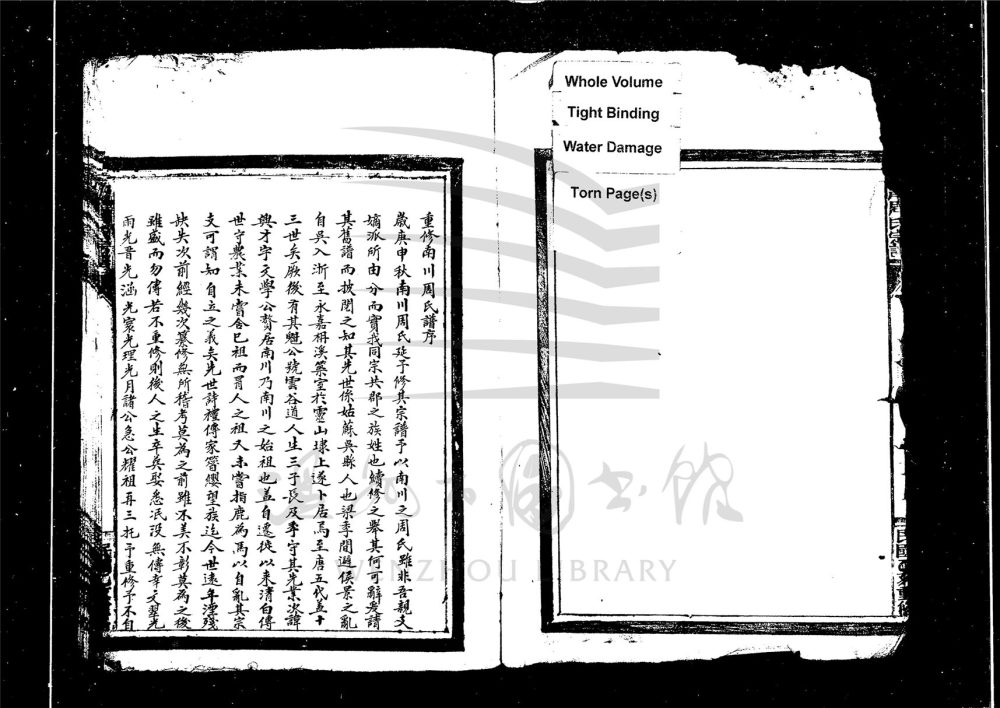 Whole Volume
Tight Binding
Water Damage
Torn Page(s)
重修南川周氏譜序
歲庚申秋南川周氏延予修其宗譜予以南川之周氏雖非吾親支
嫡派所由分而實我同宗共郡之族姓也續修之舉其何可辭爰請
其舊譜而披閱之知其先世係姑蘇吳縣人也梁季間避侯景之亂
自吳入浙至永嘉枏溪築室於靈山埭上遂卜居焉至唐五代蓋十
三世矣厥後有其魁公號雲谷道人生三子長及季守其先業次諱
興才字文學公贅居南川乃南川之始祖也蓋自遷徙以來清白傳
世守農業未嘗舍己祖而冒人之祖又未嘗指鹿為馬以自亂其宗
支可謂知自立之義矣先世詩禮傳家簪纓望族迄今世遠年湮殘
缺失次前經幾次纂修無所稽考莫為之前雖不美不彰莫為之後
雖盛而勿傳若不重修則後人之生卒葬娶悉泯沒無傳幸文翠光
雨光晋光涵光寰光理光月諸公急公耀祖再三托予重修予不自
WENZHOU LIBRARY